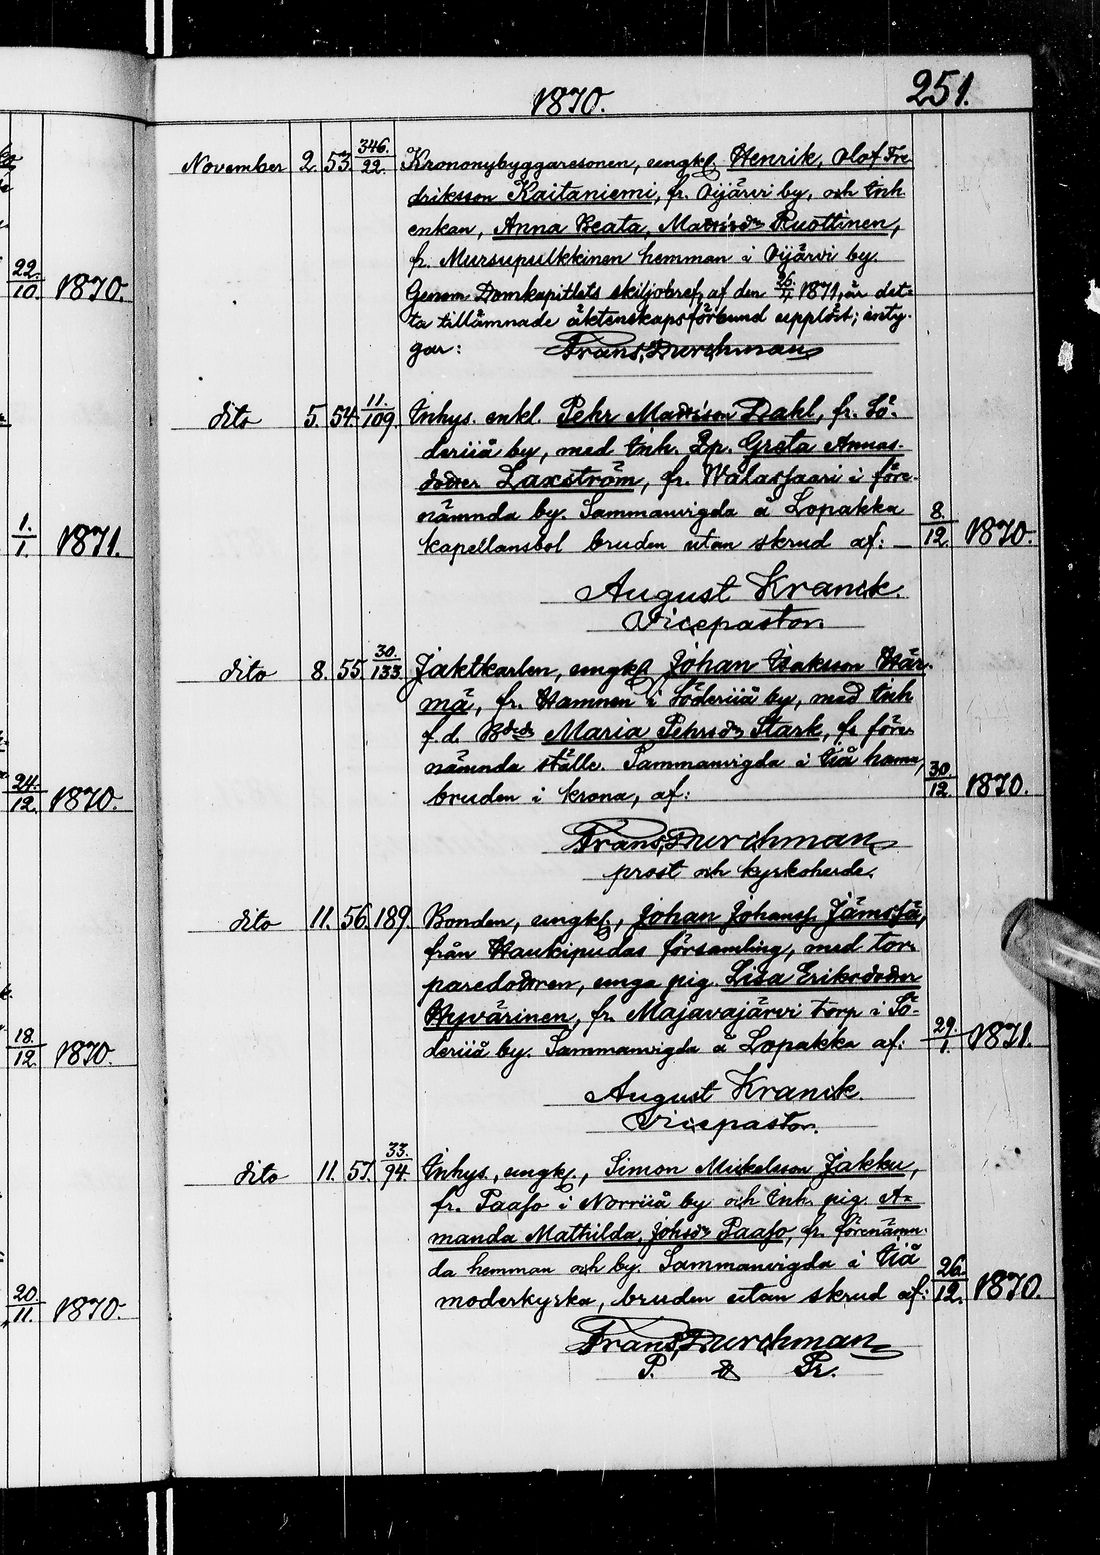 1870.
251.
November 2. 53. 346./22. Krononybyggaresonen, ungkl Henrik, Olof Fre
driksson Kaitaniemi, fr. Oijärvi by, och Inh
enkan, Anna Beata, Mattsdr Ruottinen,
fr. Mursupulkkinen hemman i Oijärvi by.
Genom Domkapitlets skiljobref, af den 26/1, 1871, är det=
ta tillämnade äktenskapsförbund upplöst; inty-
gar: Frans, Durchman
dito 5. 54. 11./109. Inhys. enkl. Pehr Mattsson Dahl, fr. Sö-
deriiå by, med Inh. Pp. Greta Annas-
dotter Laxström, fr. Walassaari i före-
nämnda by. Sammanvigda å Lopakka
kapellansbol bruden utan skrud af: — 8./12. 1870.
August Kranck.
Vicepastor.
dito 8. 55. 30./133 Jaktkarlen, ungkl Johan Isaksson Här-
mä, fr. Hamnen i Söderiiå by, med Inh
f. d. Bdedr Maria Pehrsdr Stark, fr före-
nämnda ställe. Sammanvigda i Iiå hamn,
bruden i krona, af: 30./12. 1870.
Frans, Durchman
prost och kyrkoherde.
dito 11. 56. 189. Bonden, ungkl, Johan Johanss. Jämsjä,
från Haukipudas församling, med tor-
paredottren, unga pig. Lisa Eriksdotter
Hyvärinen, fr. Majavajärvi torp i Sö-
deriiå by. Sammanvigda å Lopakka af: 29./1. 1871.
August Kranck
Vicepastor.
dito 11. 57. 33./94. Inhys., ungkl., Simon Mickelsson Jakku,
fr. Paaso i Norriiå by och Inh. pig. A=
manda Mathilda, Johsdr Paaso, fr. förenämn-
da hemman och by. Sammanvigda i Iiå
moderkyrka, bruden utan skrud af: 26./12. 1870.
Frans, Durchman
P. & Pr.
22./10. 1870.
1./1. 1871.
24./12. 1870.
18./12. 1870.
20./11. 1870.